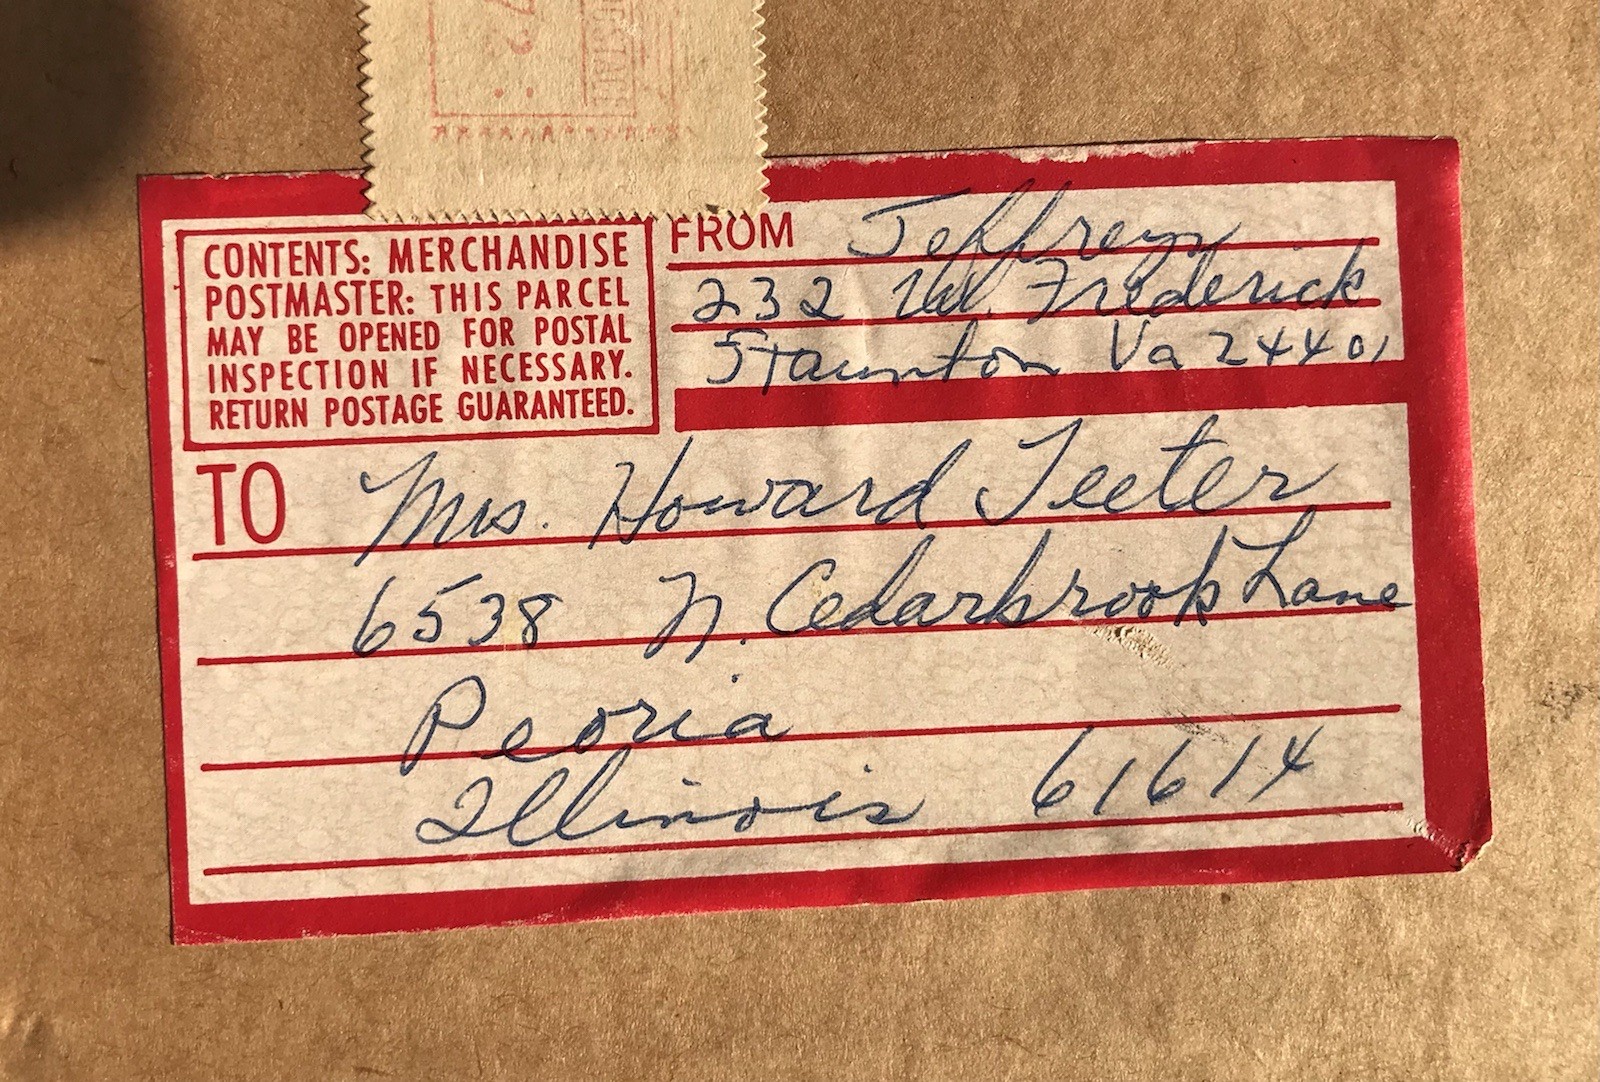 CONTENTS: MERCHANDISE
POSTMASTER: THIS PARCEL
MAY BE OPENED FOR POSTAL
INSPECTION IF NECESSARY.
RETURN POSTAGE GUARANTEED.
FROM Jeffreys
232 W. Frederick
Staunton Va 24401
TO Mrs. Howard Teeter
6538 N. Cedarbrook Lane
Peoria
Illinois 61614